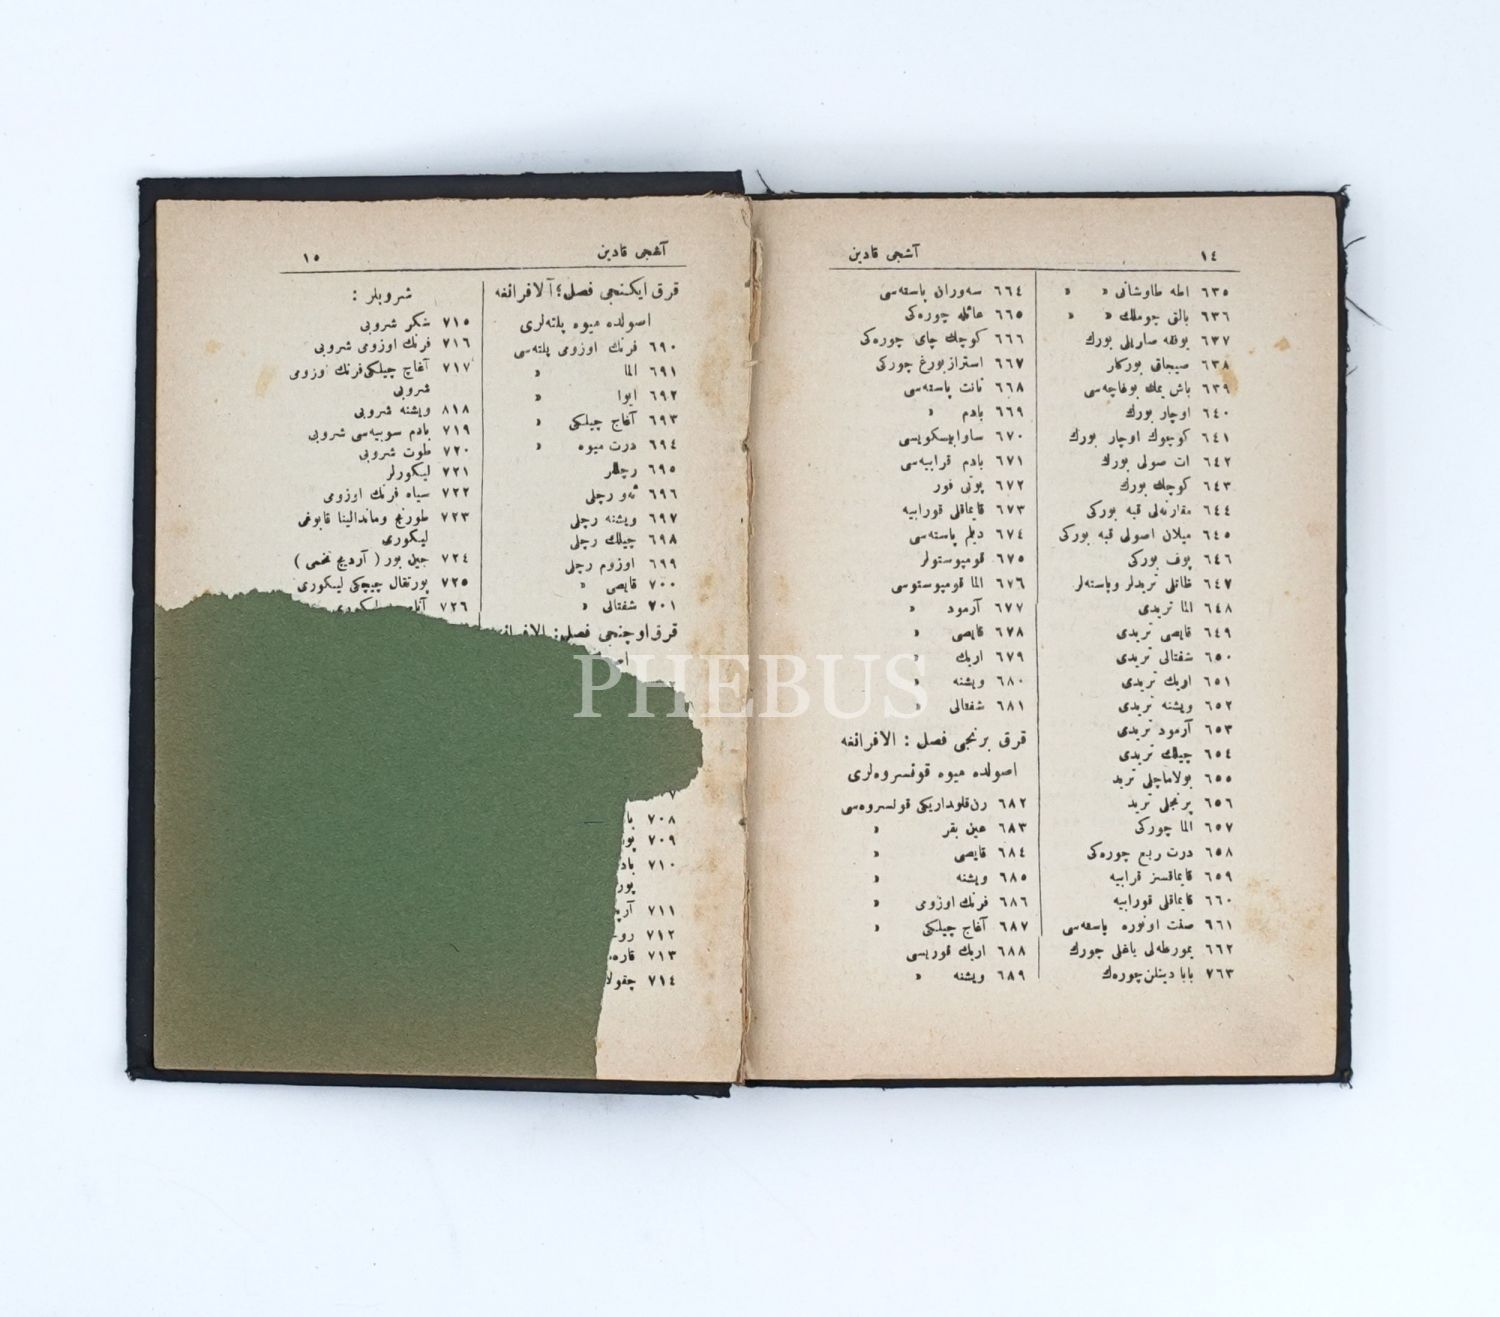 ١٤ آشجی قادین
٦٣٥ اطه طاوشانی » »
٦٣٦ بالق چوملك » »
٦٣٧ یوفقه صاریلی بورك
٦٣٨ صیجاق بورکلر
٦٣٩ باش یمك بوغاچه‌سی
٦٤٠ اوچار بورك
٦٤١ کوچوك اوچار بورك
٦٤٢ ات صولی بورك
٦٤٣ کوچك بورك
٦٤٤ مقارنه‌لی قبه بورکی
٦٤٥ میلان اصولی قبه بورکی
٦٤٦ پوف بورکی
٦٤٧ طاتلی تریدلر وپاسته‌لر
٦٤٨ الما تریدی
٦٤٩ قایصی تریدی
٦٥٠ شفتالی تریدی
٦٥١ اریك تریدی
٦٥٢ ویشنه تریدی
٦٥٣ آرمود تریدی
٦٥٤ چیلك تریدی
٦٥٥ بولاماچلی ترید
٦٥٦ پرنجلی ترید
٦٥٧ الما چورکی
٦٥٨ درت ربع چوره‌کی
٦٥٩ قایماقسز قرابیه
٦٦٠ قایماقلی قورابیه
٦٦١ صفت اونوره پاسته‌سی
٦٦٢ یمورطه‌لی یاغلی چورك
٧٦٣ بابا دینلن چوره‌ك
٦٦٤ سه‌وران پاسته‌سی
٦٦٥ عائله چوره‌کی
٦٦٦ کوچك چای چوره‌کی
٦٦٧ استرازبورغ چورکی
٦٦٨ نانت پاسته‌سی
٦٦٩ بادم »
٦٧٠ ساوابیسکویسی
٦٧١ بادم قرابیه‌سی
٦٧٢ پوتی فور
٦٧٣ قایماقلی قورابیه
٦٧٤ دیلم پاسته‌سی
٦٧٥ قومپوستولر
٦٧٦ الما قومپوستوسی
٦٧٧ آرمود »
٦٧٨ قایصی »
٦٧٩ اریك »
٦٨٠ ویشنه »
٦٨١ شفتالی »
قرق برنجی فصل : الافرانغه
اصولده میوه قونسروه‌لری
٦٨٢ رن‌قلوداریکی قونسروه‌سی
٦٨٣ عین بقر »
٦٨٤ قایصی »
٦٨٥ ویشنه »
٦٨٦ فرنك اوزومی »
٦٨٧ آغاج چیلکی »
٦٨٨ اریك قوریسی
٦٨٩ ویشنه »
آشجی قادین ١٥
قرق ایکنجی فصل : آلافرانغه
اصولده میوه پلته‌لری
٦٩٠ فرنك اوزومی پلته‌سی
٦٩١ الما »
٦٩٢ ایوا »
٦٩٣ آغاج چیلکی »
٦٩٤ درت میوه »
٦٩٥ رچللر
٦٩٦ ئه‌و رچلی
٦٩٧ ویشنه رچلی
٦٩٨ چیلك رچلی
٦٩٩ اوزوم رچلی
٧٠٠ قایصی »
٧٠١ شفتالی »
قرق اوچنجی فصل : الافرانغه
٧٠٨
٧٠٩
٧١٠
٧١١
٧١٢
٧١٣
٧١٤
شروبلر :
٧١٥ شکر شروبی
٧١٦ فرنك اوزومی شروبی
٧١٧ آغاج چیلکی فرنك اوزومی
شروبی
٨١٨ ویشنه شروبی
٧١٩ بادم سوبیه‌سی شروبی
٧٢٠ طوت شروبی
٧٢١ لیکورلر
٧٢٢ سیاه فرنك اوزومی
٧٢٣ طورنج وماندالینا قابوغی
لیکوری
٧٢٤ جین بور ( آردیج تخمی )
٧٢٥ پورتقال چیچکی لیکوری
٧٢٦ لیکوری
PHEBUS